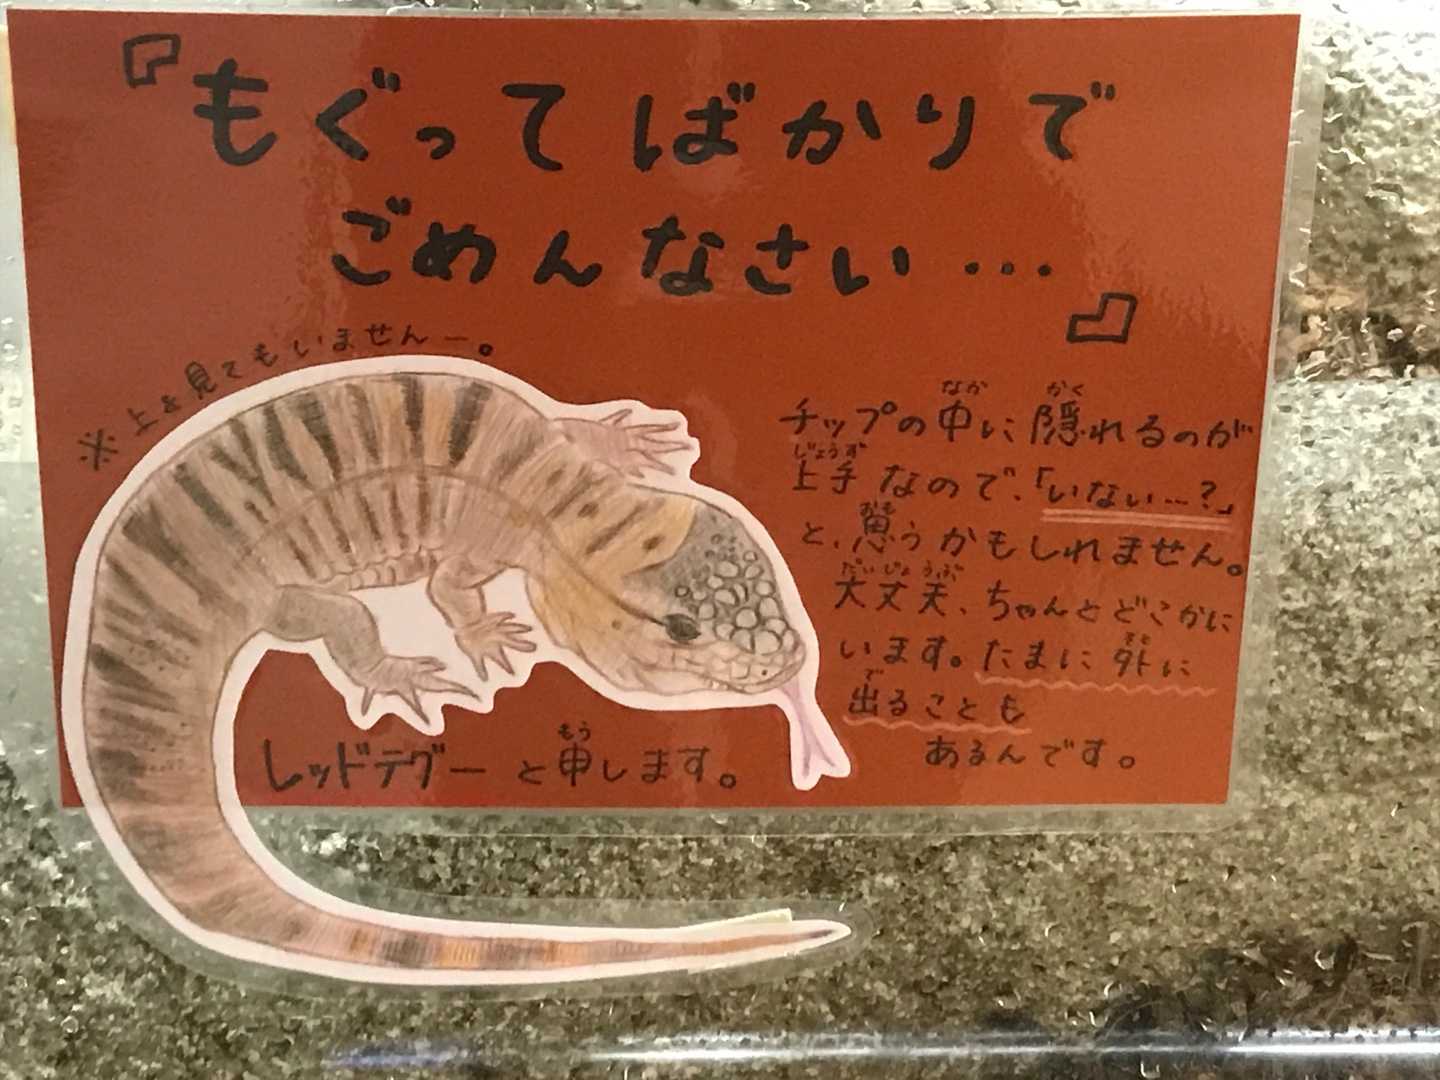 『もぐってばかりで
ごめんなさい…』
※上を見てもいませんー。
チップの中に隠れるのが
上手なので、「いない…?」
と、思うかもしれません。
大丈夫、ちゃんとどこかに
います。たまに外に
出ることも
あるんです。
レッドテグーと申します。